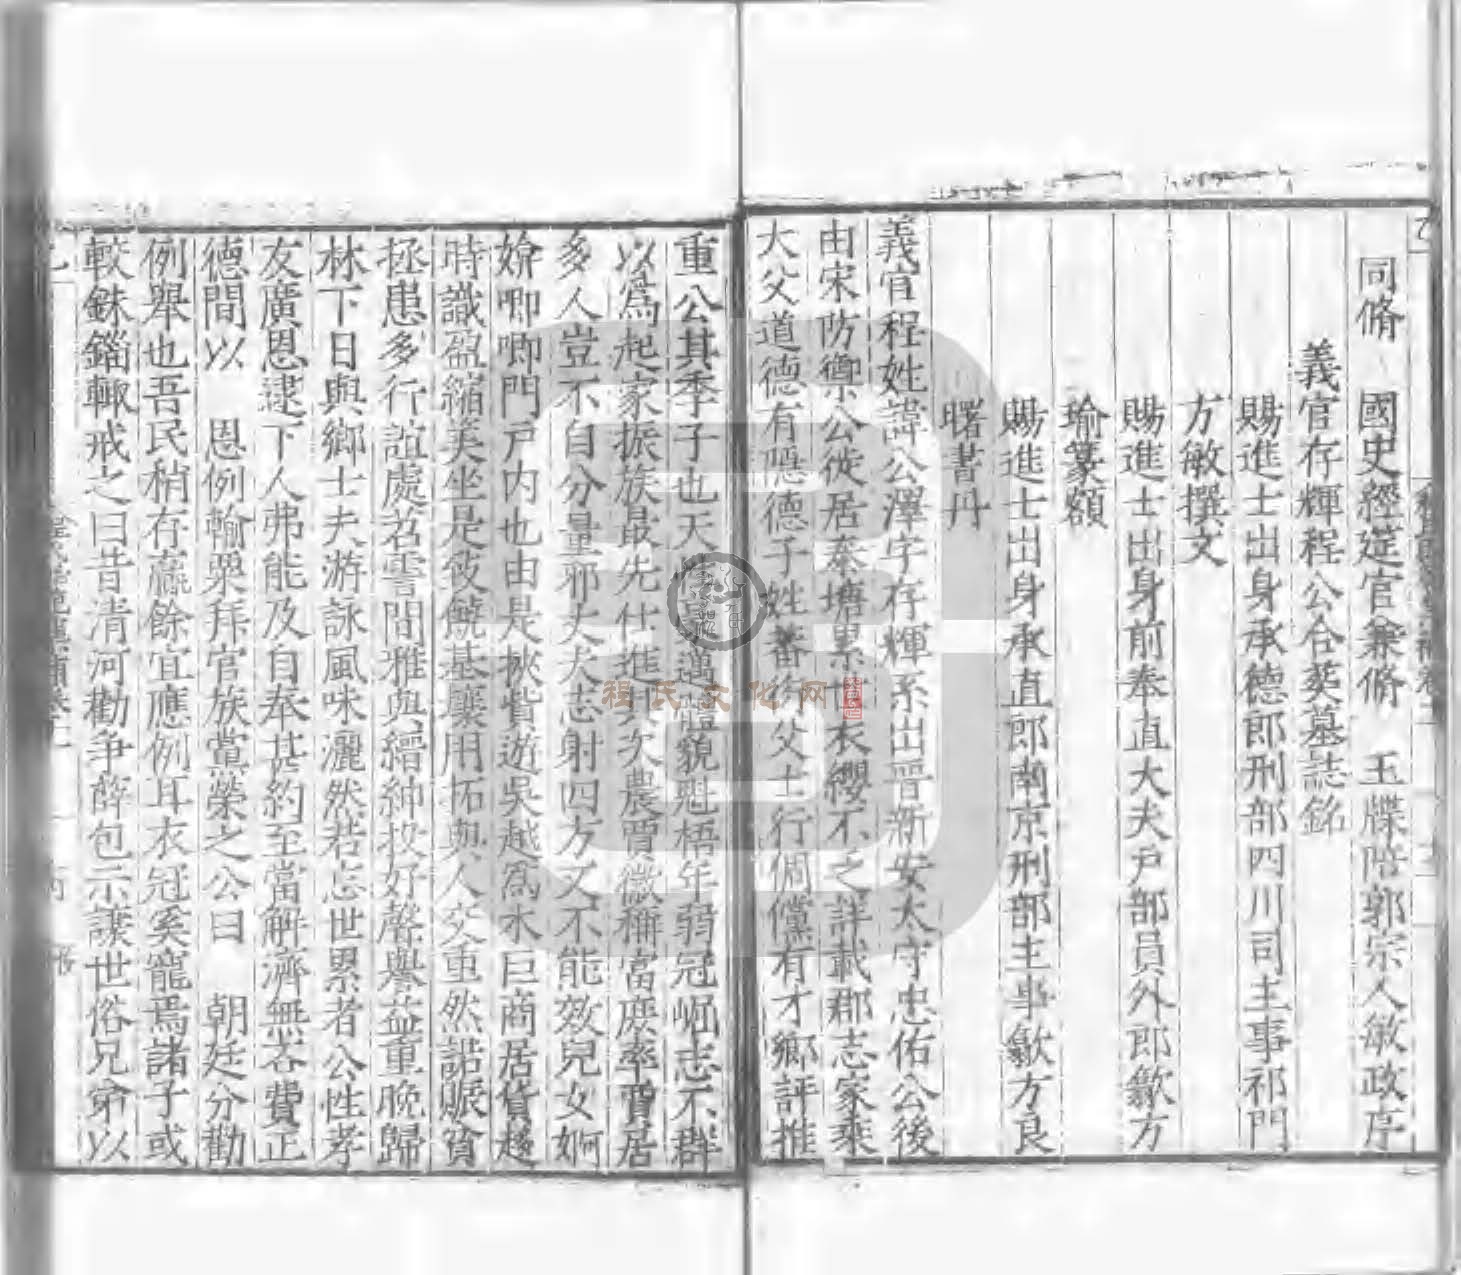 同脩　國史經筵官兼脩　玉牒陪郭宗人敏政序
義官存輝程公合葬墓誌銘
賜進士出身承德郎刑部四川司主事祁門
方敏撰文
賜進士出身前奉直大夫戶部員外郎歙方
瑜篆額
賜進士出身承直郎南京刑部主事歙方良
曙書丹
義官程姓諱公澤字存輝系出晋新安太守忠佑公後
由宋防禦公徙居泰塘累世衣纓不之詳載郡志家乘
大父道德有隱德子姓蕃衍父士行倜儻有才鄉評推
重公其季子也天性謹萬貌魁梧年弱冠崛志不群
以爲起家振族最先仕進其次農賈微稱富庶率賈居
多人豈不自分量邪丈夫志射四方又不能效兒女婀
娿唧唧門戶内也由是挾貲遊吳越爲木巨商居貨趍
時識盈縮筭坐是彼饒基釀用拓與人交重然諾賑貧
拯患多行誼處召雲間雅與縉紳投好聲譽益重晚歸
林下日與鄉士夫游詠風味灑然若忘世累者公性孝
友廣恩逮下人弗能及自奉甚約至當解濟無吝費正
德間以　恩例輸粟拜官族黨榮之公曰　朝廷分勸
例舉也吾民稍存羸餘宜應例耳衣冠奚寵焉諸子或
較銖錙輒戒之曰昔清河勸爭薛包示讓世俗兄弟以
程氏文化网